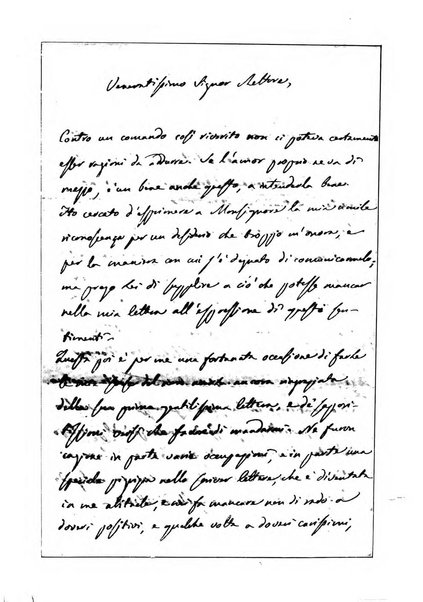 Veneratissimo Signor Rettore,
Contro un comando così riverito non ci poteva certamente
esser ragioni da addurre. Se l'amor proprio ne va di
mezzo, è un bene anche questo, a intenderla bene.
Ho cercato d'esprimere a Monsignore la mia umile
riconoscenza per un desiderio che troppo m'onora, e
per la maniera con cui s'è degnato di comunicarmelo;
ma prego Lei di supplire a ciò che potesse mancar
nella mia lettera all'espressione di questo sen-
timento.
Questa poi è per me una fortunata occasione di farle
le mie scuse del non averla ancora ringraziata
della sua prima gentilissima lettera, e de'
che di mandarmi. Ne furon
cagione in parte varie occupazioni, e in parte una
speciale pigrizia nello scriver lettere, che è diventata
in me abituale, e mi fa mancare non di rado a
doveri positivi, e qualche volta a doveri carissimi,